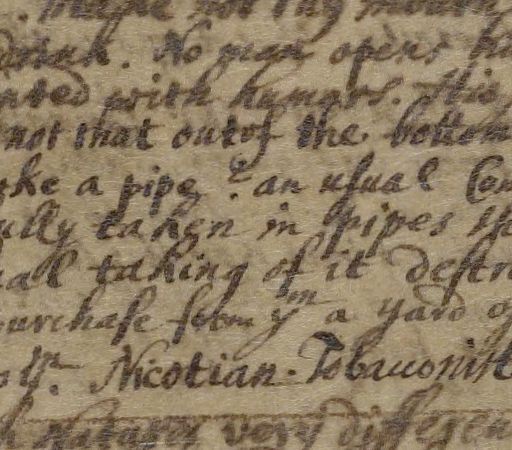 not thy mouth
drink. No man opens ha
nted with humors. His
not that out of the bottom
ke a pipe? an usual Com
ully taken in pipes th
ual taking of it destr
purchase from yᵐ a yard of
yʳ. Nicotian. Tobacconist
Nature very differen